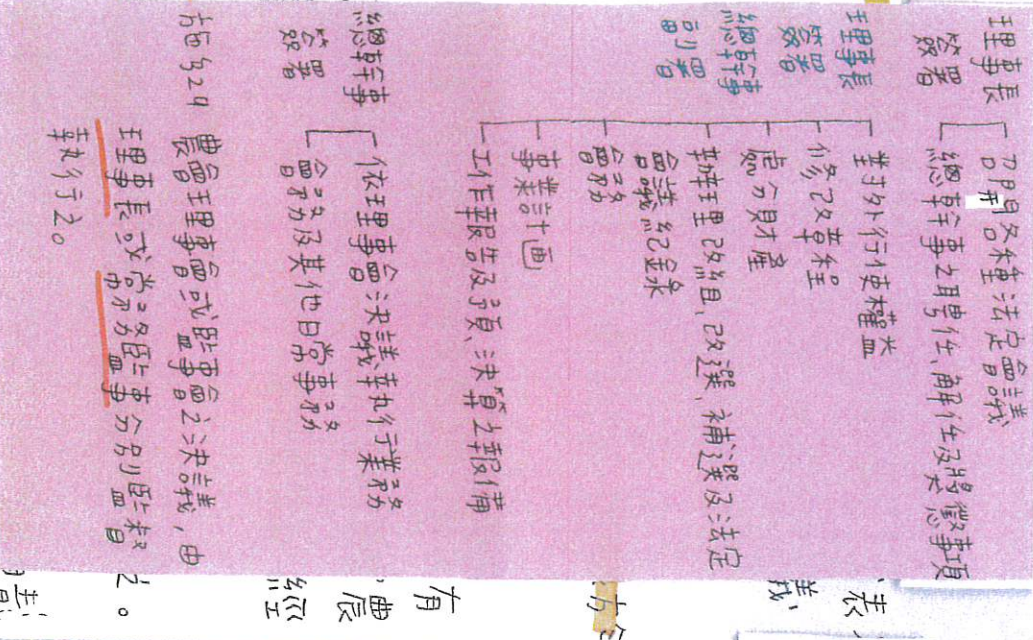 理事長
簽署
召開各種法定會議
總幹事之聘任、解任及獎懲事項
理事長
簽署
總幹事
副署
對外行使權益
修改章程
處分財產
辦理改組、改選、補選及法定
會議紀錄
會務
事業計画
工作報告及預、決算之報備
總幹事
簽署
依理事會決議執行業務
會務及其他日常事務
24
農會理事會或監事會之決議，由
理事長或常務監事分別監督
執行之。
表
議
有
農
經
。